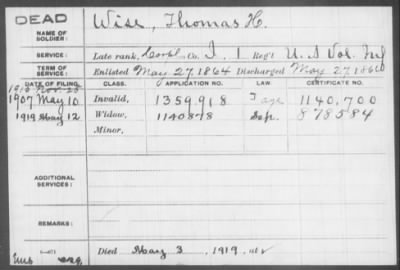 DEAD
NAME OF SOLDIER: Wise, Thomas H.
SERVICE: Late rank, Corpl, Co. I, 1 Reg't U. S. Vol. Inf
TERM OF SERVICE: Enlisted May 27, 1864 Discharged May 27 1866
DATE OF FILING. CLASS. APPLICATION NO. LAW. CERTIFICATE NO.
1907 May 10 Invalid, 1359,918 1140,700
1919 May 12 Widow, 1140878 Sep. 878584
Minor,
ADDITIONAL SERVICES:
REMARKS:
Died May 3, 1919,